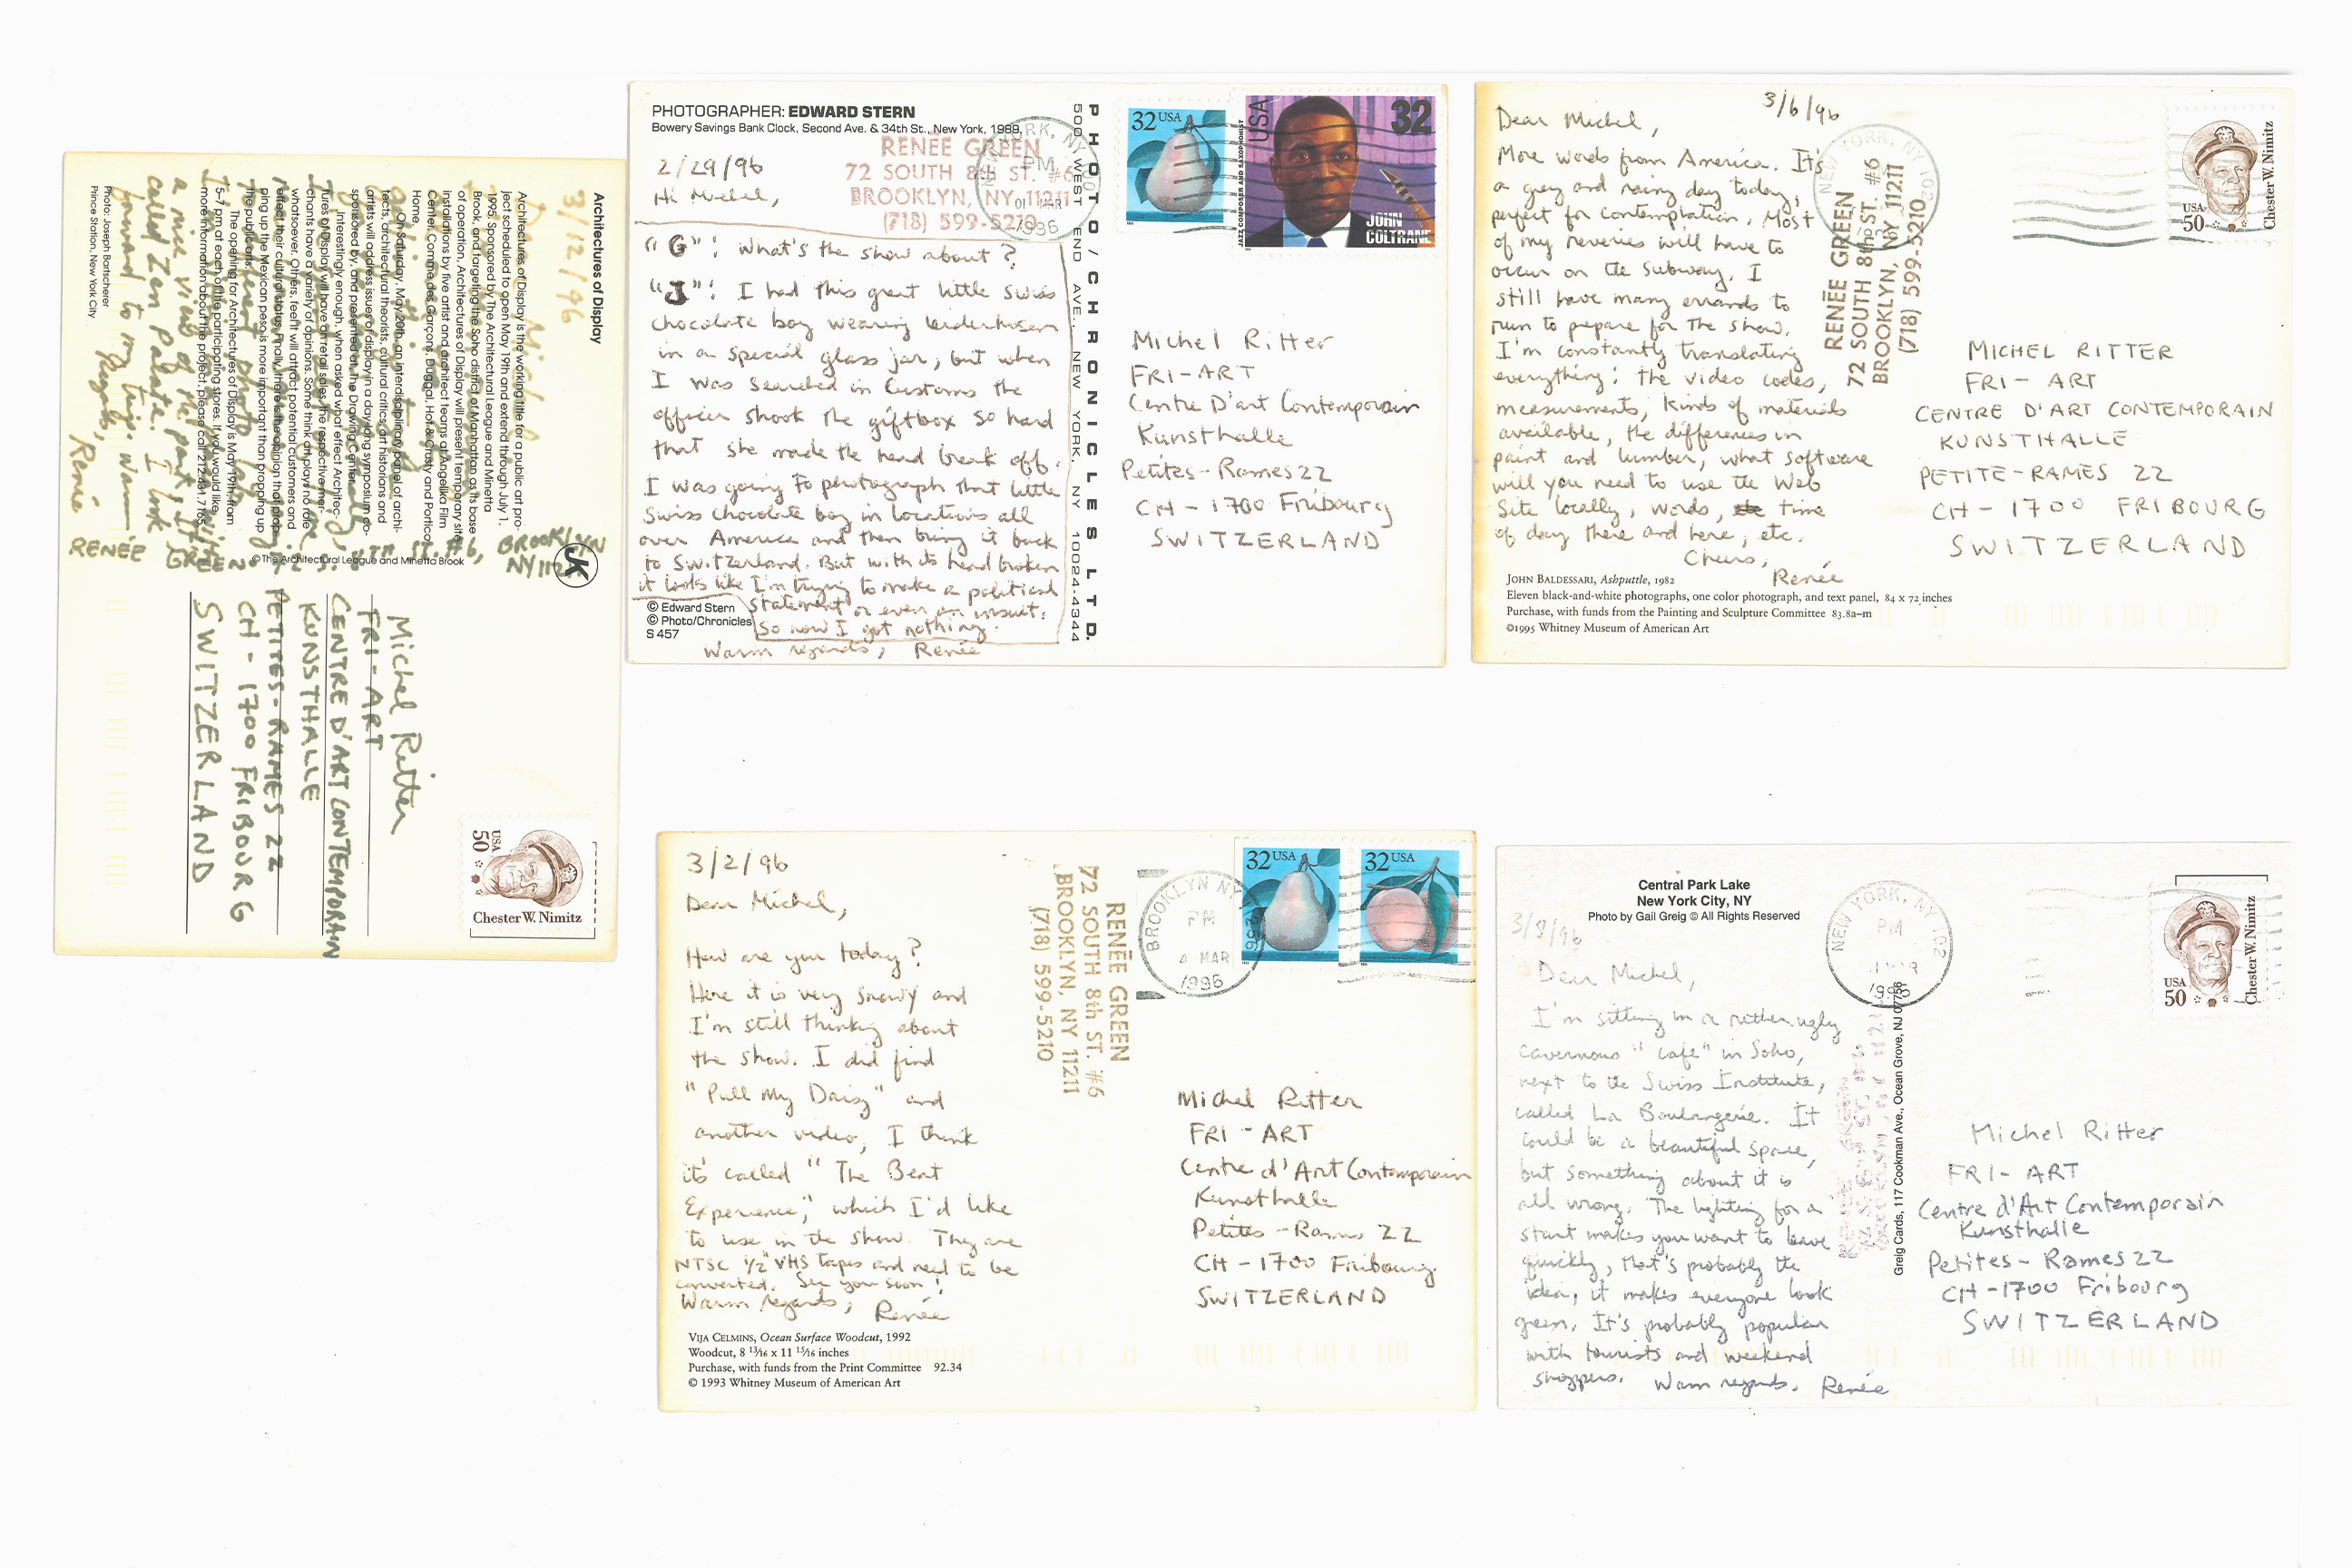 Architectures of Display
3/12/96
Architectures of Display is the working title for a public art pro-
ject scheduled to open May 19th and extend through July 1,
1995. Sponsored by The Architectural League and Minetta
Brook, and targeting the Soho district of Manhattan as its base
of operation, Architectures of Display will present temporary site
installations by five artist and architect teams at Angelika Film
Center, Comme des Garçons, Duggal, Hot & Crusty and Particor
Home.
On Saturday, May 20th, an interdisciplinary panel of archi-
tects, architectural theorists, cultural critics, art historians and
artists will address issues of display in a day-long symposium co-
sponsored by, and presented at, The Drawing Center.
Interestingly enough, when asked what effect Architec-
tures of Display will have on retail sales, the respective mer-
chants have a variety of opinions. Some think art plays no role
whatsoever. Others feel it will attract potential customers and
reflect their cultural status. Finally, there is the opinion that prop-
ping up the Mexican peso is more important than propping up
the public arts.
The opening for Architectures of Display is May 19th, from
5-7 pm at each of the participating stores. If you would like
more information about the project, please call 212.431.7165.
a nice view of the park,
called Zen Palate. I look
forward to my trip. Warm
Regards, Renée
Photo: Joseph Bartscherer
Prince Station, New York City
RENÉE GREEN
ST. #6, BROOKLYN
NY 112
© The Architectural League and Minetta Brook
JK
Michel Ritter
FRI-ART
CENTRE D'ART CONTEMPORAIN
KUNSTHALLE
PETITES-RAMES 22
CH-1700 FRIBOURG
SWITZERLAND
USA
50
Chester W. Nimitz
PHOTOGRAPHER: EDWARD STERN
Bowery Savings Bank Clock, Second Ave. & 34th St., New York, 1989.
RENÉE GREEN
72 SOUTH 8th ST. #6
BROOKLYN, NY 11211
(718) 599-5210
2/29/96
Hi Michel,
"G": What's the show about?
"J": I had this great little Swiss
chocolate boy wearing leiderhosen
in a special glass jar, but when
I was searched in Customs the
officer shook the giftbox so hard
that she made the head break off.
I was going to photograph that little
Swiss chocolate boy in locations all
over America and then bring it back
to Switzerland. But with its head broken
it looks like I'm trying to make a political
statement or even an insult.
So now I got nothing.
Warm regards, Renée
© Edward Stern
© Photo/Chronicles
S 457
PHOTO/CHRONICLES LTD.
500 WEST END AVE., NEW YORK, NY 10024-4344
PM
01 MAR
1996
32 USA
USA
32
JAZZ COMPOSER AND SAXOPHONIST
JOHN
COLTRANE
Michel Ritter
FRI-ART
Centre D'art Contemporain
Kunsthalle
Petites-Rames 22
CH-1700 Fribourg
SWITZERLAND
3/6/96
Dear Michel,
More words from America. It's
a grey and rainy day today,
perfect for contemplation. Most
of my reveries will have to
occur on the subway. I
still have many errands to
run to prepare for the show.
I'm constantly translating
everything: the video codes,
measurements, kinds of materials
available, the differences in
paint and lumber, what software
will you need to use the Web
Site locally, words, time
of day there and here, etc.
Cheers,
Renée
JOHN BALDESSARI, Ashputtle, 1982
Eleven black-and-white photographs, one color photograph, and text panel, 84 x 72 inches
Purchase, with funds from the Painting and Sculpture Committee 83.8a–m
©1995 Whitney Museum of American Art
NEW YORK, NY 102
RENÉE GREEN
72 SOUTH 8th ST. #6
BROOKLYN, NY 11211
(718) 599-5210
USA
50
Chester W. Nimitz
MICHEL RITTER
FRI-ART
CENTRE D'ART CONTEMPORAIN
KUNSTHALLE
PETITE-RAMES 22
CH-1700 FRIBOURG
SWITZERLAND
3/2/96
Dear Michel,
How are you today?
Here it is very snowy and
I'm still thinking about
the show. I did find
"Pull My Daisy" and
another video, I think
it's called "The Beat
Experience," which I'd like
to use in the show. They are
NTSC 1/2" VHS tapes and need to be
converted. See you soon!
Warm regards, Renée
VIJA CELMINS, Ocean Surface Woodcut, 1992
Woodcut, 8 13/16 x 11 15/16 inches
Purchase, with funds from the Print Committee 92.34
© 1993 Whitney Museum of American Art
RENÉE GREEN
72 SOUTH 8th ST. #6
BROOKLYN, NY 11211
(718) 599-5210
BROOKLYN NY
PM
4 MAR
1996
32 USA
32 USA
Michel Ritter
FRI-ART
Centre d'Art Contemporain
Kunsthalle
Petites-Rames 22
CH-1700 Fribourg
SWITZERLAND
Central Park Lake
New York City, NY
Photo by Gail Greig © All Rights Reserved
3/8/96
Dear Michel,
I'm sitting in a rather ugly
cavernous "cafe" in Soho,
next to the Swiss Institute,
called La Boulangerie. It
could be a beautiful space,
but something about it is
all wrong. The lighting for a
start makes you want to leave
quickly, that's probably the
idea, it makes everyone look
green. It's probably popular
with tourists and weekend
shoppers. Warm regards. Renée
NEW YORK, NY 102
PM
Greig Cards, 117 Cookman Ave., Ocean Grove, NJ 07756
USA
50
Chester W. Nimitz
Michel Ritter
FRI-ART
Centre d'Art Contemporain
Kunsthalle
Petites-Rames 22
CH-1700 Fribourg
SWITZERLAND